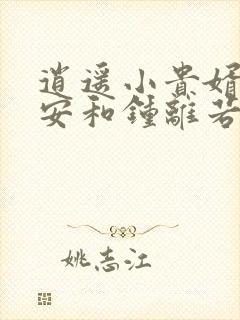 逍遥小贵婿
安和鍾離若
姚志江